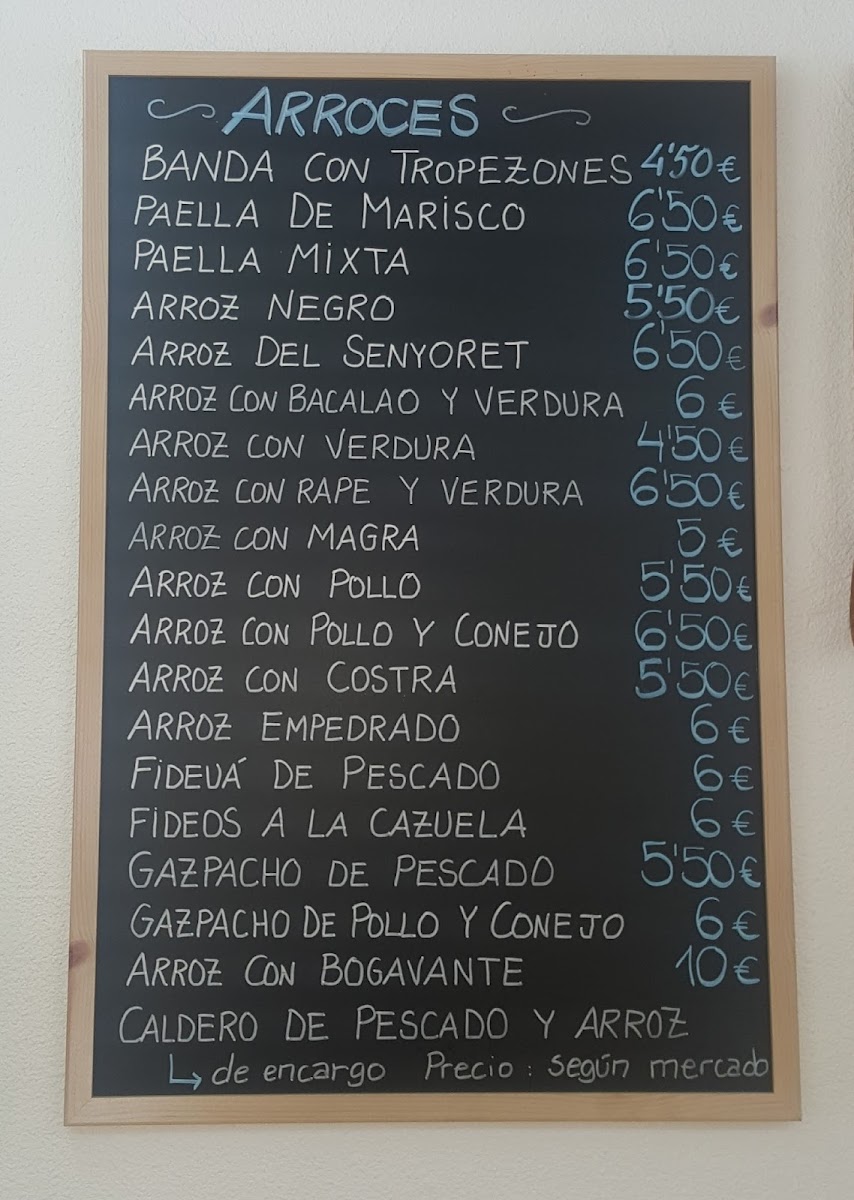 ARROCES
BANDA CON TROPEZONES 4'50€
PAELLA DE MARISCO 6'50€
PAELLA MIXTA 6'50€
ARROZ NEGRO 5'50€
ARROZ DEL SENYORET 6'50€
ARROZ CON BACALAO Y VERDURA 6€
ARROZ CON VERDURA 4'50€
ARROZ CON RAPE Y VERDURA 6'50€
ARROZ CON MAGRA 5€
ARROZ CON POLLO 5'50€
ARROZ CON POLLO Y CONEJO 6'50€
ARROZ CON COSTRA 5'50€
ARROZ EMPEDRADO 6€
FIDEUÁ DE PESCADO 6€
FIDEOS A LA CAZUELA 6€
GAZPACHO DE PESCADO 5'50€
GAZPACHO DE POLLO Y CONEJO 6€
ARROZ CON BOGAVANTE 10€
CALDERO DE PESCADO Y ARROZ
↳ de encargo Precio: según mercado